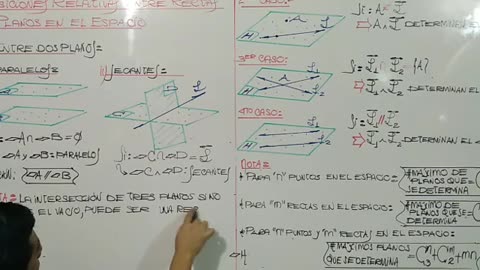 SICIONES RELATIVAS ENTRE RECTAS
PLANOS EN EL ESPACIO
ENTRE DOS PLANOS=
PARALELOS
SECANTES=
A
B
C
D
L
Si: ▱C∩▱D = L
▱C ∩ ▱D: SECANTES
: ▱A∩▱B = Ø
▱A y ▱B: PARALELOS
▱A // ▱B
LA INTERSECCIÓN DE TRES PLANOS SI NO
ES EL VACÍO, PUEDE SER UNA RE
Si: A
⇒ A ∧ L DETERMINAN
3ER CASO:
A
L1
L2
Si: L1 ∩ L2 = {A}
⇒ L1 ∧ L2 DETERMINAN EL
4TO CASO:
L1
L2
Si: L1 // L2
⇒ L1 ∧ L2 DETERMINAN EL
NOTA=
* PARA "n" PUNTOS EN EL ESPACIO:
MÁXIMO DE
PLANOS QUE =
SE DETERMINA
* PARA "m" RECTAS EN EL ESPACIO:
MÁXIMO DE
PLANOS QUE
SE DETERMINA
* PARA "n" PUNTOS y "m" RECTAS EN EL ESPACIO:
MÁXIMOS PLANOS
QUE SE DETERMINAN = C n 3 + C m 2 + mn